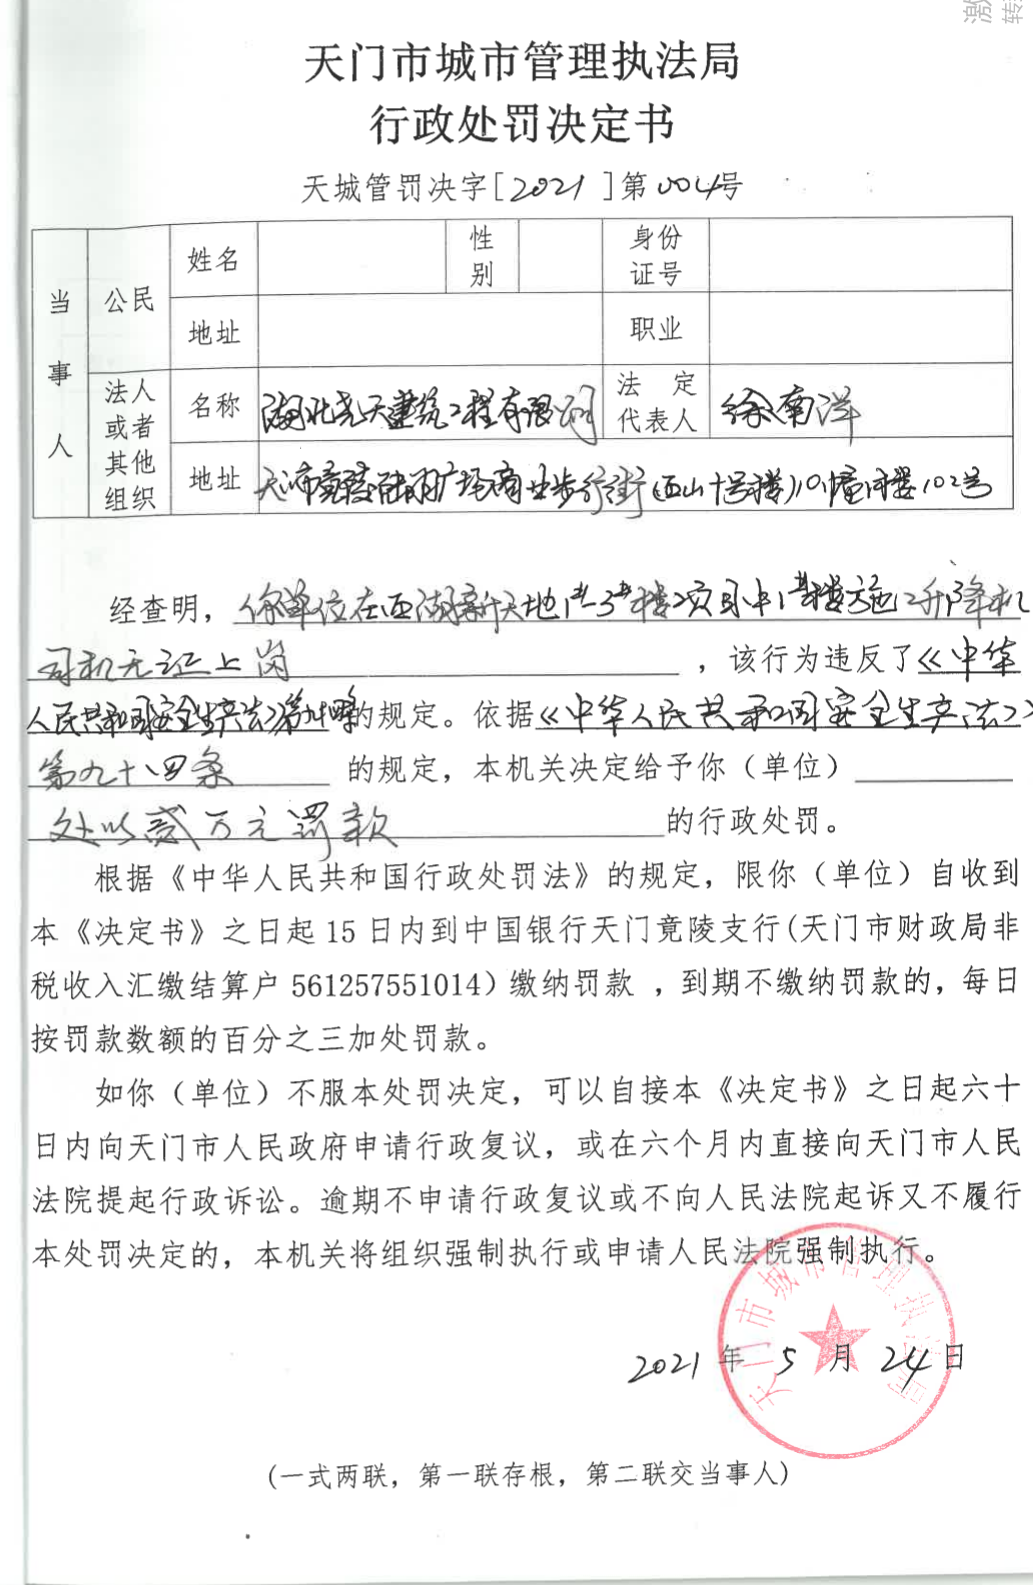 激
转
天门市城市管理执法局
行政处罚决定书
天城管罚决字[2021]第004号
当事人
公民
姓名
性别
身份证号
地址
职业
法人或者其他组织
名称
湖北尧天建筑工程有限公司
法定代表人
徐南洋
地址
天门市竟陵陆羽广场商业步行街(西山十号楼)10幢1楼102号
经查明，你单位在西湖新天地1#-3#楼项目中1#楼施工升降机
司机无证上岗，该行为违反了《中华
人民共和国安全生产法》第的规定。依据《中华人民共和国安全生产法》
第九十四条的规定，本机关决定给予你（单位）
处以贰万元罚款的行政处罚。
根据《中华人民共和国行政处罚法》的规定，限你（单位）自收到
本《决定书》之日起15日内到中国银行天门竟陵支行(天门市财政局非
税收入汇缴结算户561257551014）缴纳罚款，到期不缴纳罚款的，每日
按罚款数额的百分之三加处罚款。
如你（单位）不服本处罚决定，可以自接本《决定书》之日起六十
日内向天门市人民政府申请行政复议，或在六个月内直接向天门市人民
法院提起行政诉讼。逾期不申请行政复议或不向人民法院起诉又不履行
本处罚决定的，本机关将组织强制执行或申请人民法院强制执行。
天门市城市管理执法局
2021年5月24日
(一式两联，第一联存根，第二联交当事人)